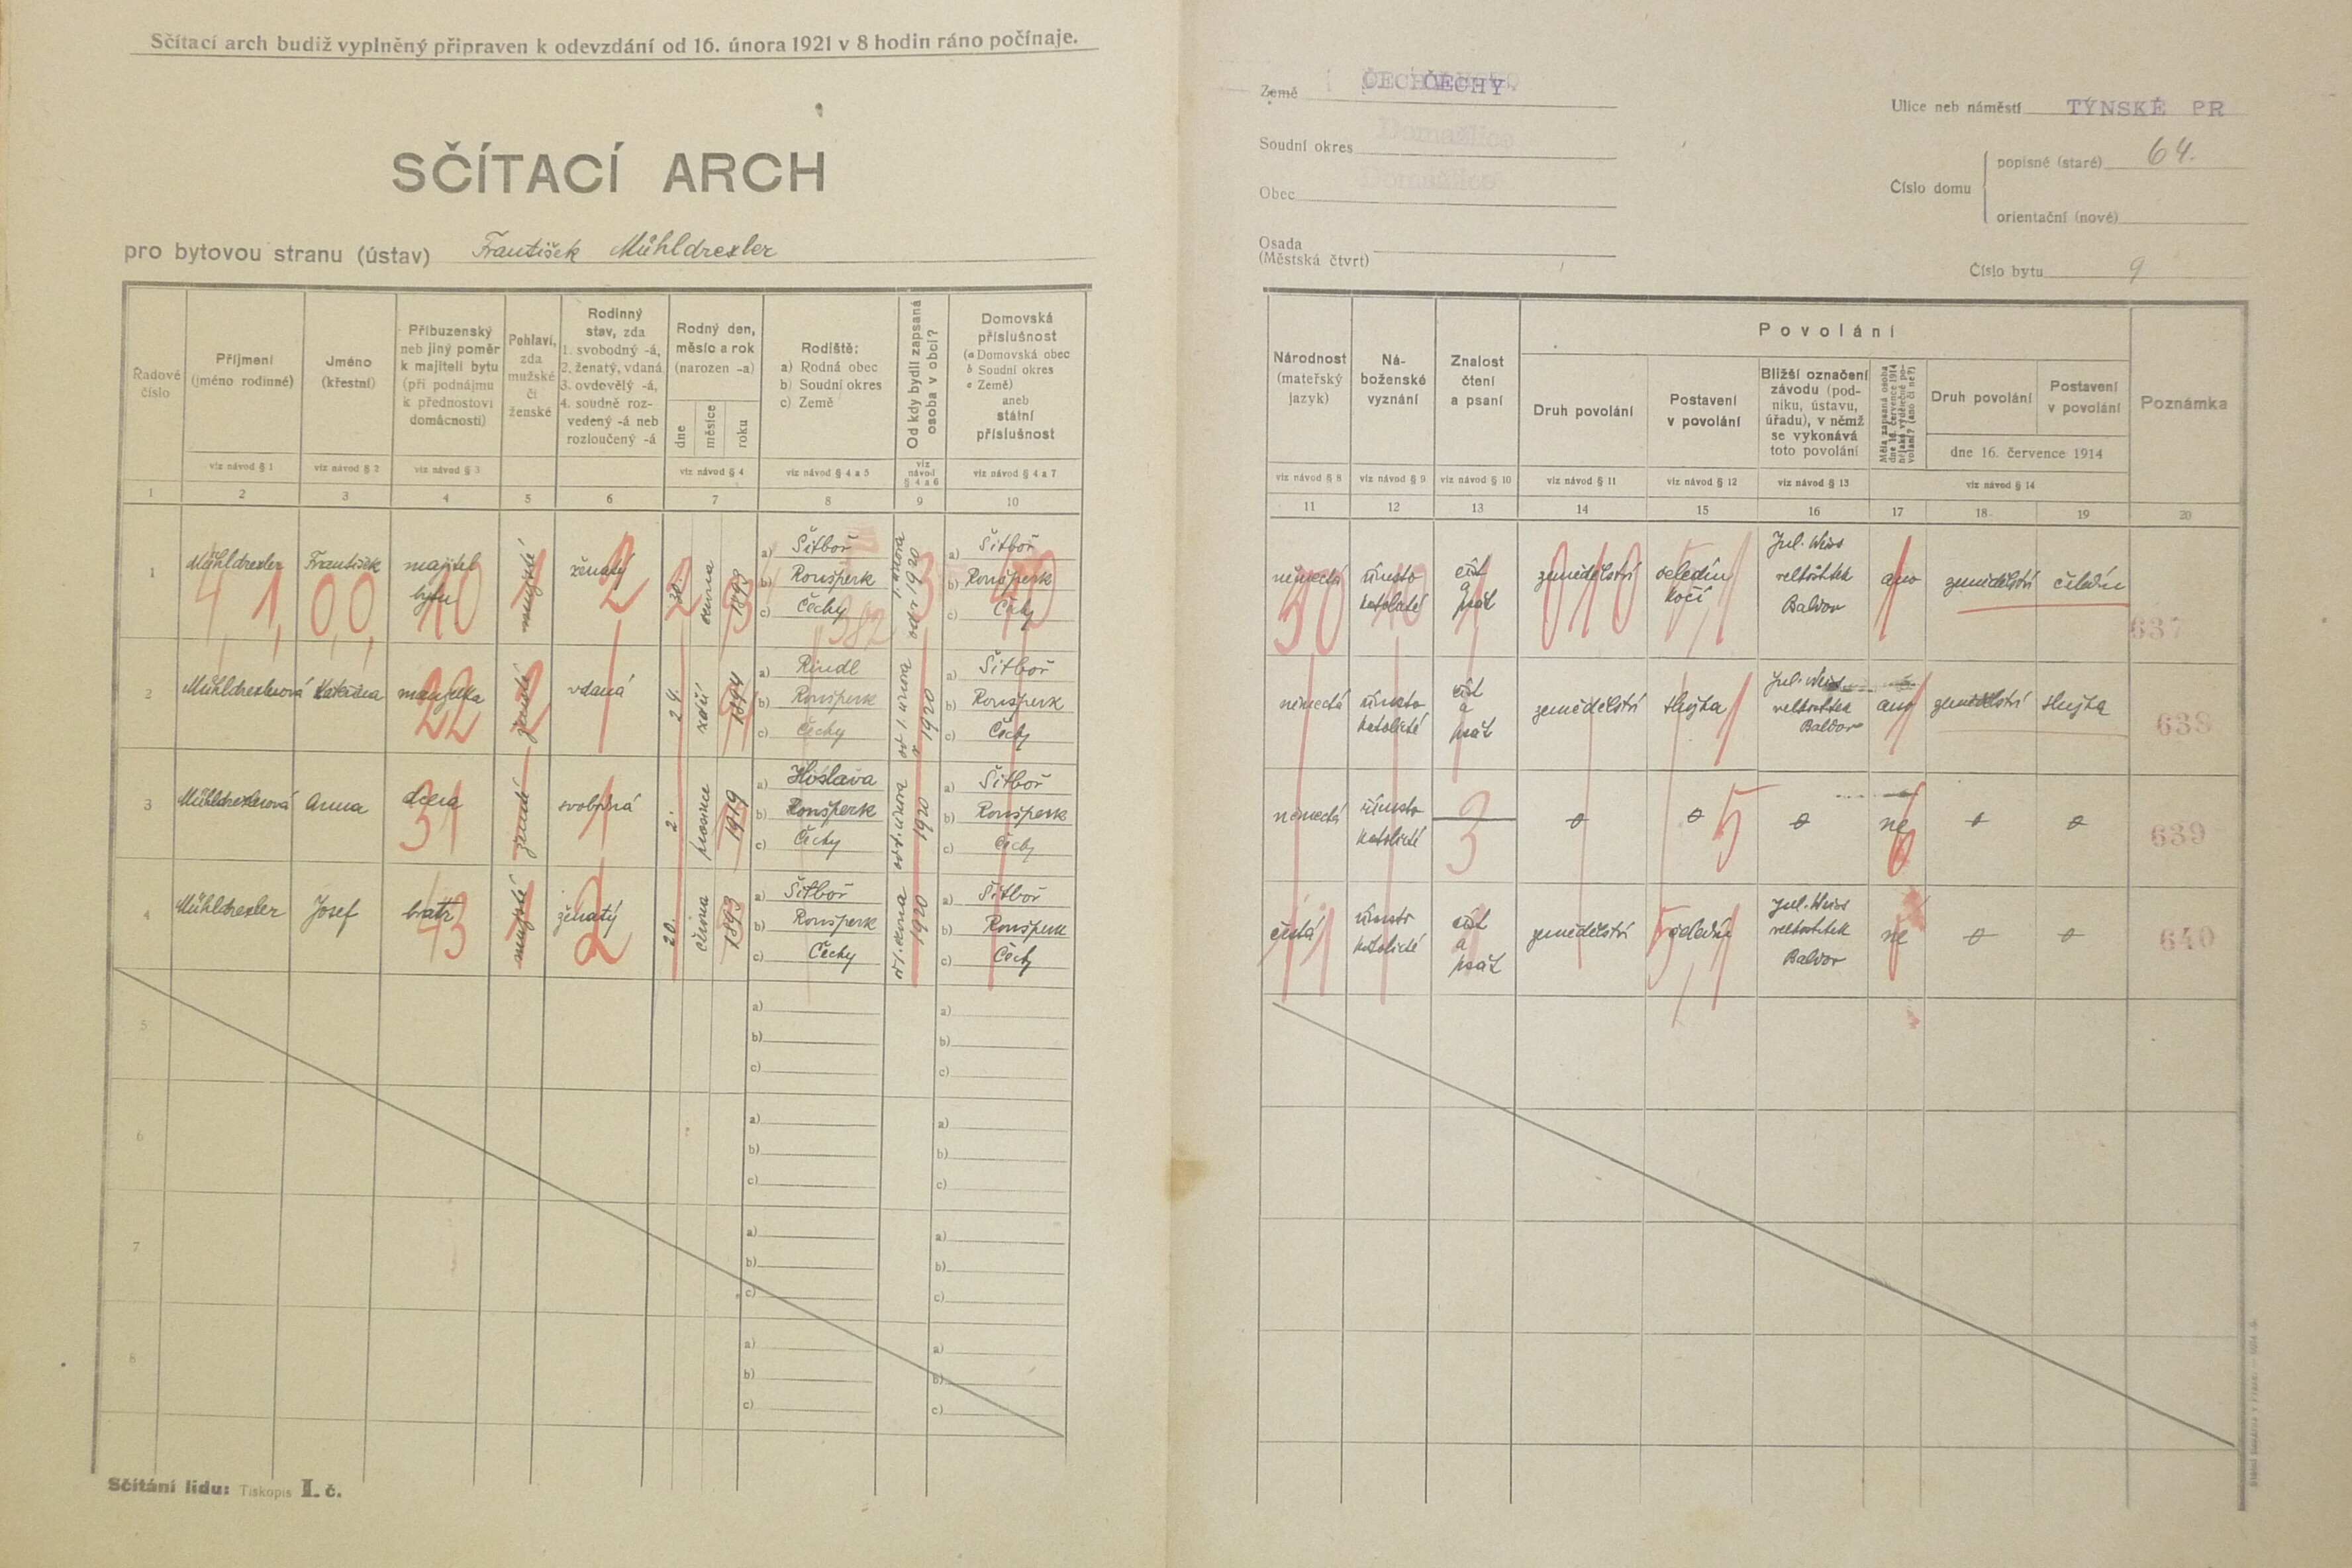 Sčítací arch budiž vyplněný připraven k odevzdání od 16. února 1921 v 8 hodin ráno počínaje.
SČÍTACÍ ARCH
pro bytovou stranu (ústav) František Mühldrexler
Země ČECHY
Soudní okres Domažlice
Obec Domažlice
Osada
(Městská čtvrt)
Ulice neb náměstí TÝNSKÉ PR
Číslo domu
popisné (staré) 64.
orientační (nové)
Číslo bytu 9
Řadové číslo
Příjmení (jméno rodinné)
Jméno (křestní)
Příbuzenský neb jiný poměr k majiteli bytu (při podnájmu k přednostovi domácnosti)
Pohlaví, zda mužské či ženské
Rodinný stav, zda 1. svobodný -á, 2. ženatý, vdaná 3. ovdovělý -á, 4. soudně rozvedený -á neb rozloučený -á
Rodný den, měsíc a rok (narozen -a)
dne měsíce roku
Rodiště: a) Rodná obec b) Soudní okres c) Země
Od kdy bydlí zapsaná osoba v obci?
Domovská příslušnost (a Domovská obec b Soudní okres c Země) aneb státní příslušnost
viz návod § 1 viz návod § 2 viz návod § 3 viz návod § 4 viz návod § 4 a 5 viz návod § 4 a 6 viz návod § 4 a 7
1 2 3 4 5 6 7 8 9 10
Národnost (mateřský jazyk)
Náboženské vyznání
Znalost čtení a psaní
Povolání
Druh povolání
Postavení v povolání
Bližší označení závodu (podniku, ústavu, úřadu), v němž se vykonává toto povolání
Měla zapsaná osoba dne 16. července 1914 nějaké výdělečné povolání? (ano či ne?)
Druh povolání
Postavení v povolání
dne 16. července 1914
Poznámka
viz návod § 8 viz návod § 9 viz návod § 10 viz návod § 11 viz návod § 12 viz návod § 13 viz návod § 14
11 12 13 14 15 16 17 18 19 20
1 Mühldrexler František majitel bytu mužské ženatý
února
a) Šitboř b) Ronšperk c) Čechy
od 1. února 1920
a) Šitboř b) Ronšperk c) Čechy
německá římsko katolické číst a psát zemědělství čeledín kočí Jul. Weiss velkostatek ano zemědělství čeledín
637
2 Mühldrexlerová manželka ženské vdaná
24. září 1894
a) b) Ronšperk c) Čechy
od 1. února 1920
a) Šitboř b) Ronšperk c) Čechy
německá římsko katolické číst a psát zemědělství Jul. Weiss velkostatek ano zemědělství
638
3 Mühldrexlerová Anna dcera ženské svobodná
2. prosince 1919
a) b) Ronšperk c) Čechy
od 1. února 1920
a) Šitboř b) Ronšperk c) Čechy
německá římsko katolické ne
639
4 Mühldrexler Josef bratr mužské ženatý
20. 1893
a) Šitboř b) Ronšperk c) Čechy
od 1. února 1920
a) Šitboř b) Ronšperk c) Čechy
česká římsko katolické číst a psát zemědělství čeledín Jul. Weiss velkostatek ne
640
5 a) b) c) a) b) c)
6 a) b) c) a) b) c)
7 a) b) c) a) b) c)
8 a) b) c) a) b) c)
Sčítání lidu: Tiskopis I. č.